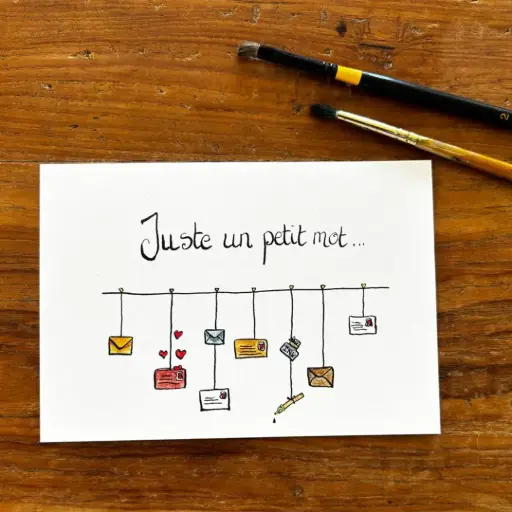 Juste un petit mot...
2